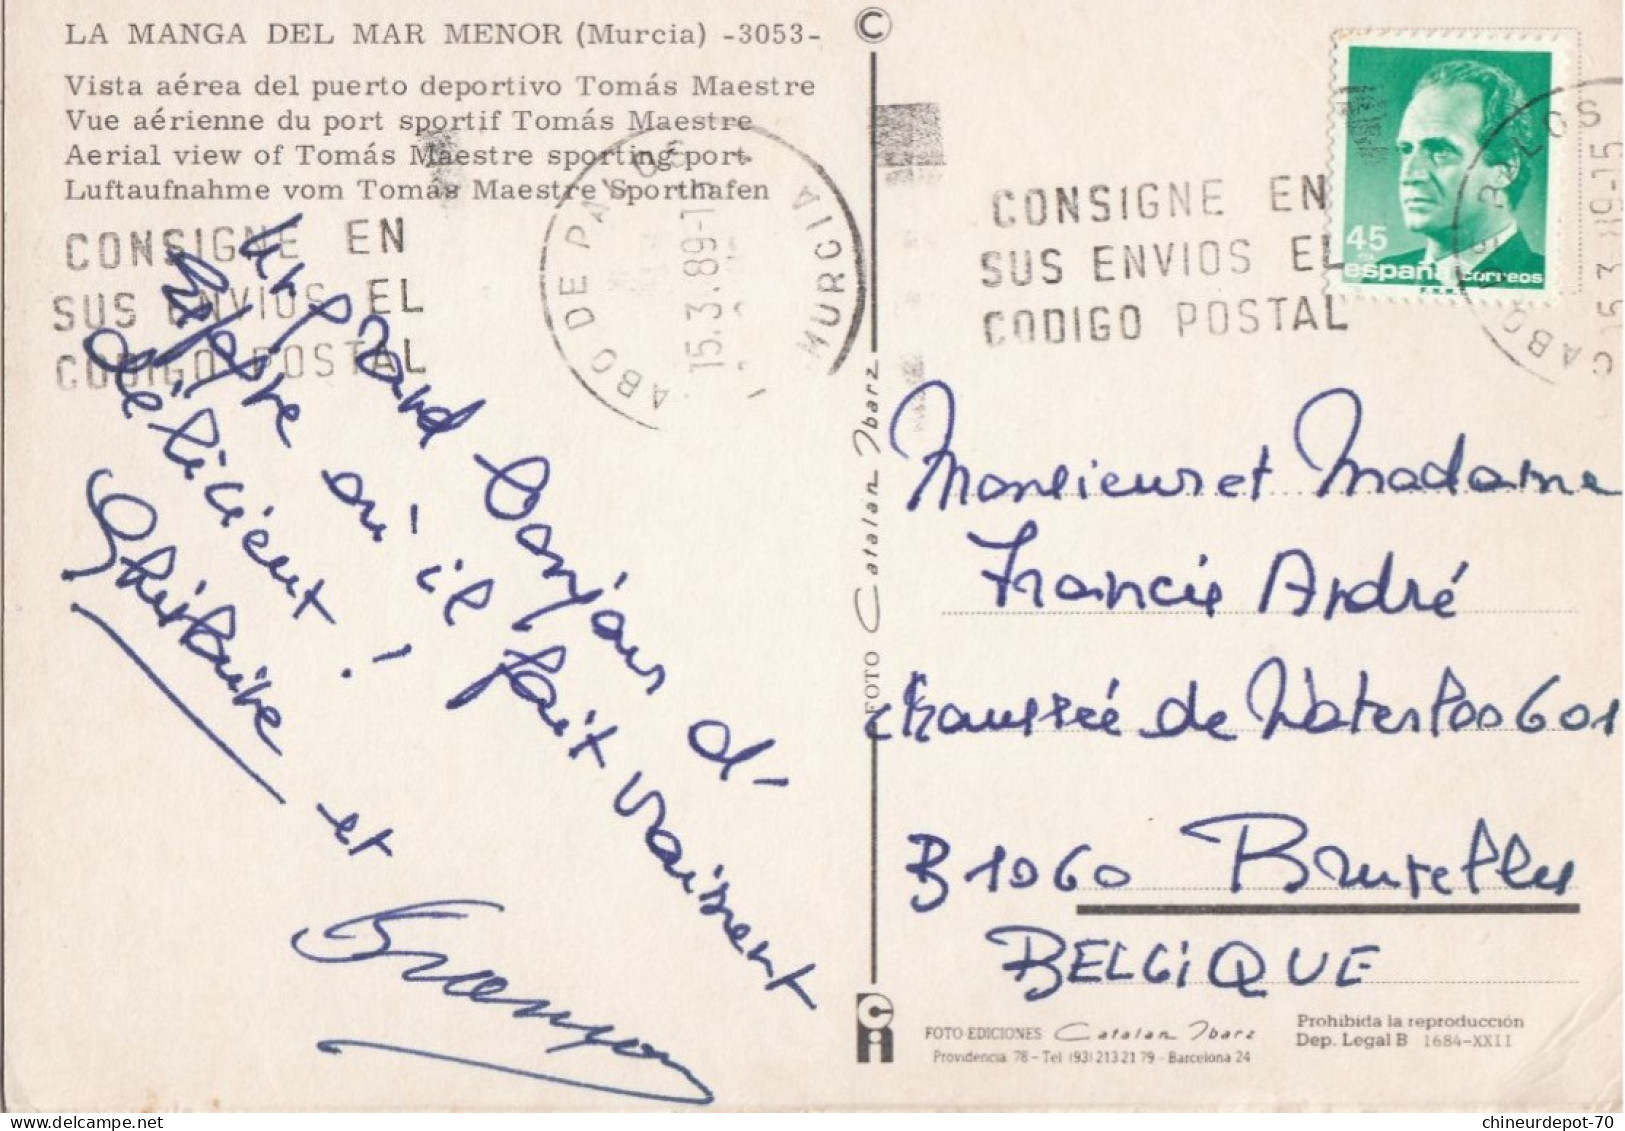 LA MANGA DEL MAR MENOR (Murcia) -3053-
Vista aérea del puerto deportivo Tomás Maestre
Vue aérienne du port sportif Tomás Maestre
Aerial view of Tomás Maestre sporting port.
Luftaufnahme vom Tomás Maestre Sporthafen
CONSIGNE EN
SUS ENVIOS EL
CODIGO POSTAL
15.3.89-1
MURCIA
Un grand bonjour d'
Espagne où il fait vraiment
délicieux !
Ghislaine et
©
FOTO Catalan Ibarz
CONSIGNE EN
SUS ENVIOS EL
CODIGO POSTAL
45
españa correos
15.3.89-15
Monsieur et Madame
Francis André
Chaussée de Waterloo 601
B 1060 Bruxelles
BELGIQUE
FOTO EDICIONES Catalan Ibarz
Providencia 78 - Tel (93) 213 21 79 - Barcelona 24
Prohibida la reproducción
Dep. Legal B 1684-XXII
chineurdepot-70